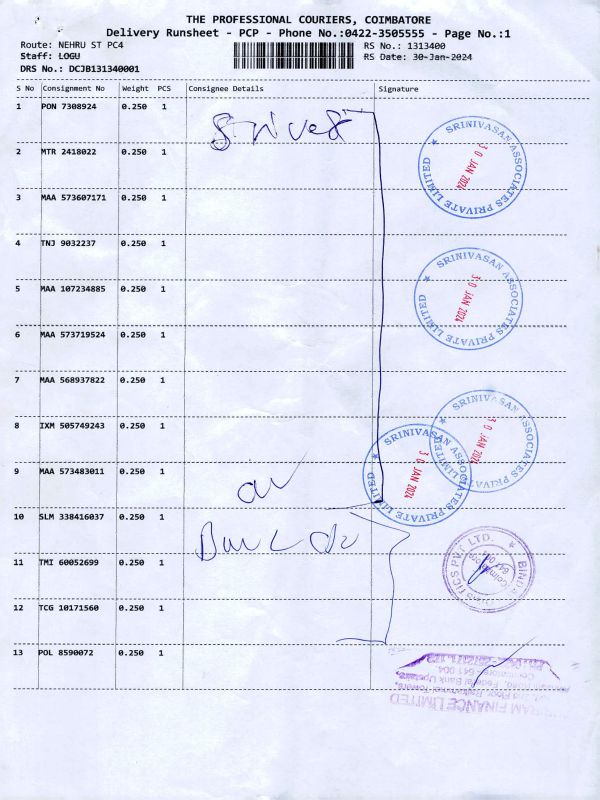 THE PROFESSIONAL COURIERS, COIMBATORE
Delivery Runsheet - PCP - Phone No.:0422-3505555 - Page No.:1
Route: NEHRU ST PC4 RS No.: 1313400
Staff: LOGU RS Date: 30-Jan-2024
DRS No.: DCJB131340001
S No Consignment No Weight PCS Consignee Details Signature
1 PON 7308924 0.250 1
2 MTR 2418022 0.250 1
3 MAA 573607171 0.250 1
4 TNJ 9032237 0.250 1
5 MAA 107234885 0.250 1
6 MAA 573719524 0.250 1
7 MAA 568937822 0.250 1
8 IXM 505749243 0.250 1
9 MAA 573483011 0.250 1
10 SLM 338416037 0.250 1
11 TMI 60052699 0.250 1
12 TCG 10171560 0.250 1
13 POL 8590072 0.250 1
SRINIVASAN ASSOCIATES PRIVATE LIMITED ★
30 JAN 2024
SRINIVASAN ASSOCIATES PRIVATE LIMITED ★
30 JAN 2024
SRINIVASAN ASSOCIATES PRIVATE LIMITED ★
30 JAN 2024
SRINIVASAN ASSOCIATES PRIVATE LIMITED ★
30 JAN 2024
PVT LTD.
FINANCE LIMITED
Floor, Towers,
Road, Federal Bank Upstairs,